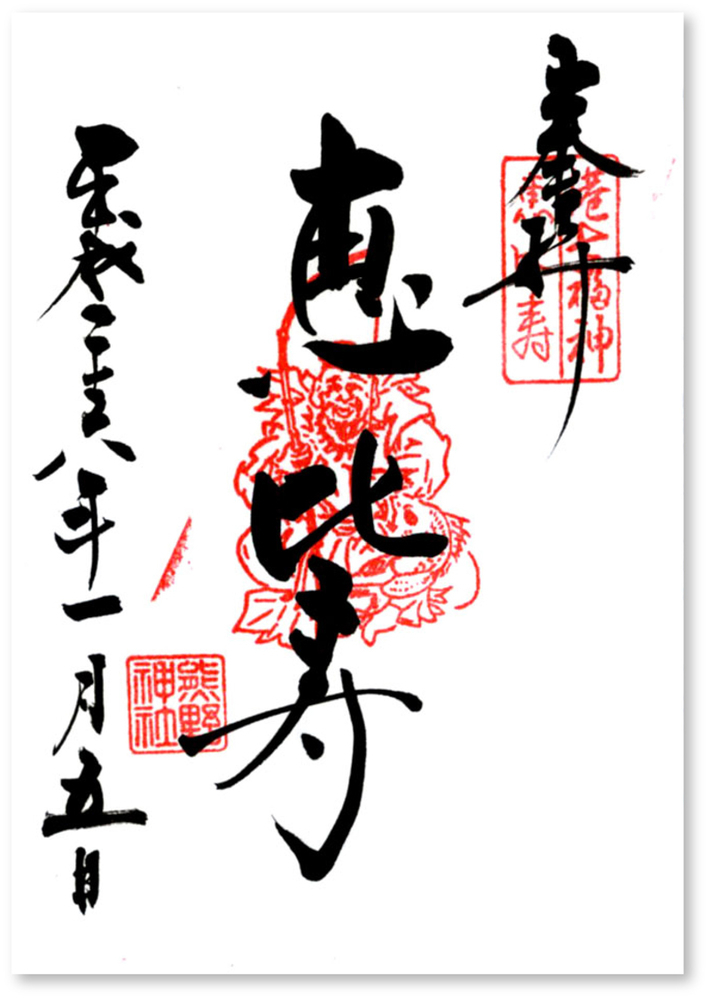 奉拝
港七福神
恵比寿
恵比寿
平成二十八年一月五日
熊野
神社